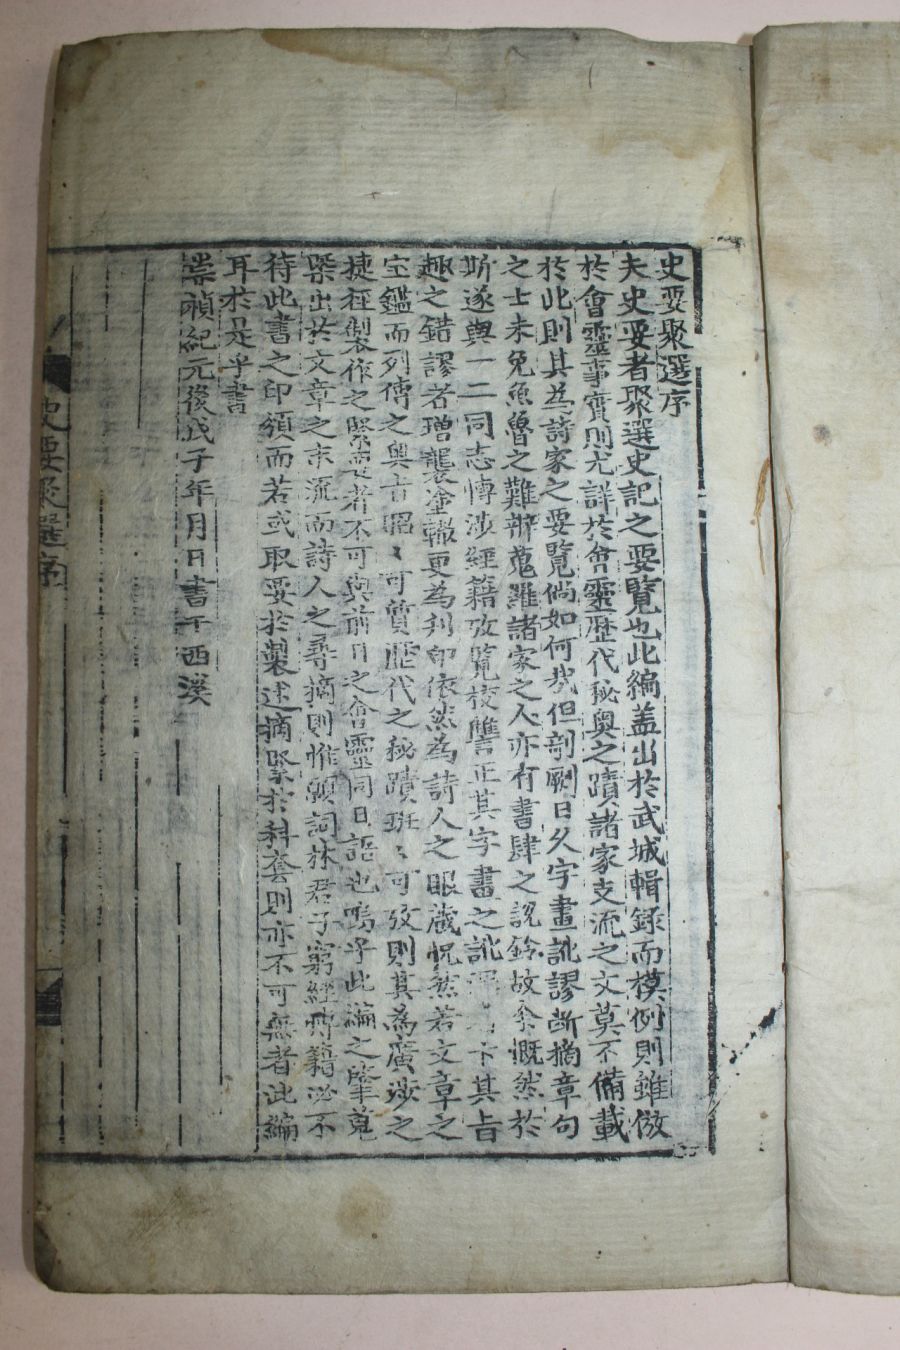 史要聚選序
夫史要者聚選史記之要覽也此編盖出於武城輯錄而模例則雖倣
於會靈事實則尤詳於會靈歷代秘奧之蹟諸家支流之文莫不備載
於此則其爲詩家之要覽倘如何哉但剞劂日久字畫訛謬斷摘章句
之士未免魚魯之難辨蒐羅諸家之人亦有書肆之説鈴故余慨然於
斯遂與一二同志博涉經籍攷覽校讐正其字畫之訛其旨
趣之錯謬者增襲塗輟更為刋印依然為詩人之眼藏怳然若文章之
宝鑑而列傳之奥旨昭〻可質歷代之秘蹟班〻可攷則其為廣涉之
捷徑製作之緊要者不可與前日之會靈同日語也嗚乎此編之肇蒐
槩出於文章之末流而詩人之尋摘則惟頭詞林君子窮經典籍必不
待此書之印須而若或取要於製述摘緊於科套則亦不可無者此編
耳於是乎書
崇禎紀元後戊子年月日書于西溪
史要聚選序